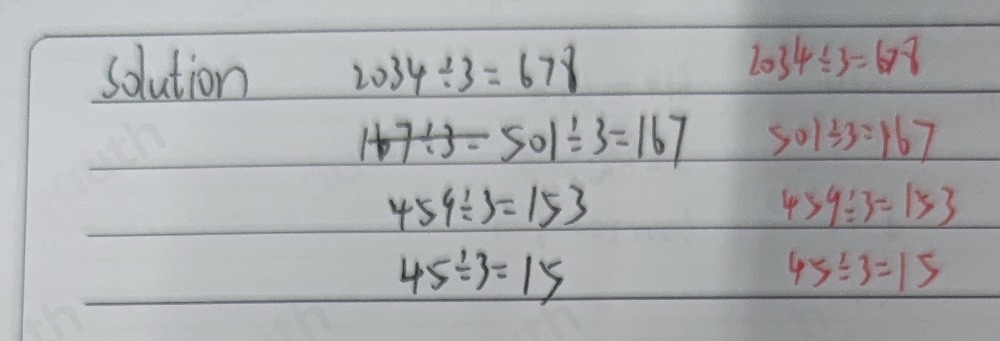 Solution 2034÷3=678 2034÷3=678
167÷3= 501÷3=167 501÷3=167
459÷3=153 459÷3=153
45÷3=15 45÷3=15